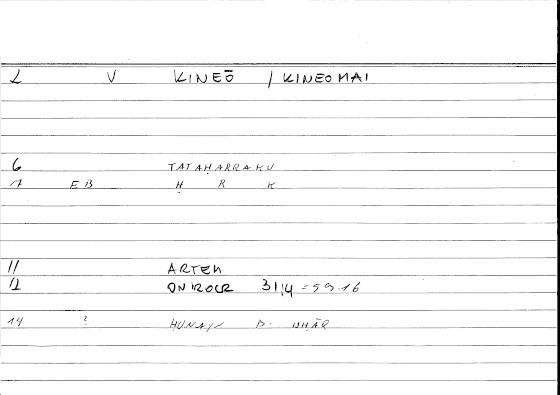 2 V KINEŌ / KINEOMAI
6 TATAḤARRAKU
7 EB Ḥ R K
11 ARTEM
12 ONIROCR 31,4 = 59.16
14 ? HUNAYN B. ISḤĀQ